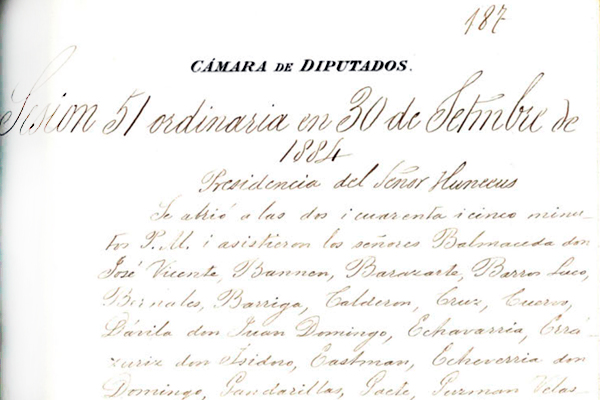 187
CÁMARA DE DIPUTADOS.
Sesion 51 ordinaria en 30 de Setmbre de
1884
Presidencia del Señor Huneeus
Se abrió a las dos i cuarenta i cinco minu-
tos P.M. i asistieron los señores Balmaceda don
José Vicente, Bannen, Barazarte, Barros Luco,
Bernales, Barriga, Calderon, Cruz, Cuervo,
Dávila don Juan Domingo, Echavarria, Errá-
zuriz don Isidoro, Eastman, Echeverria don
Domingo, Gandarillas, Guzman Velas-